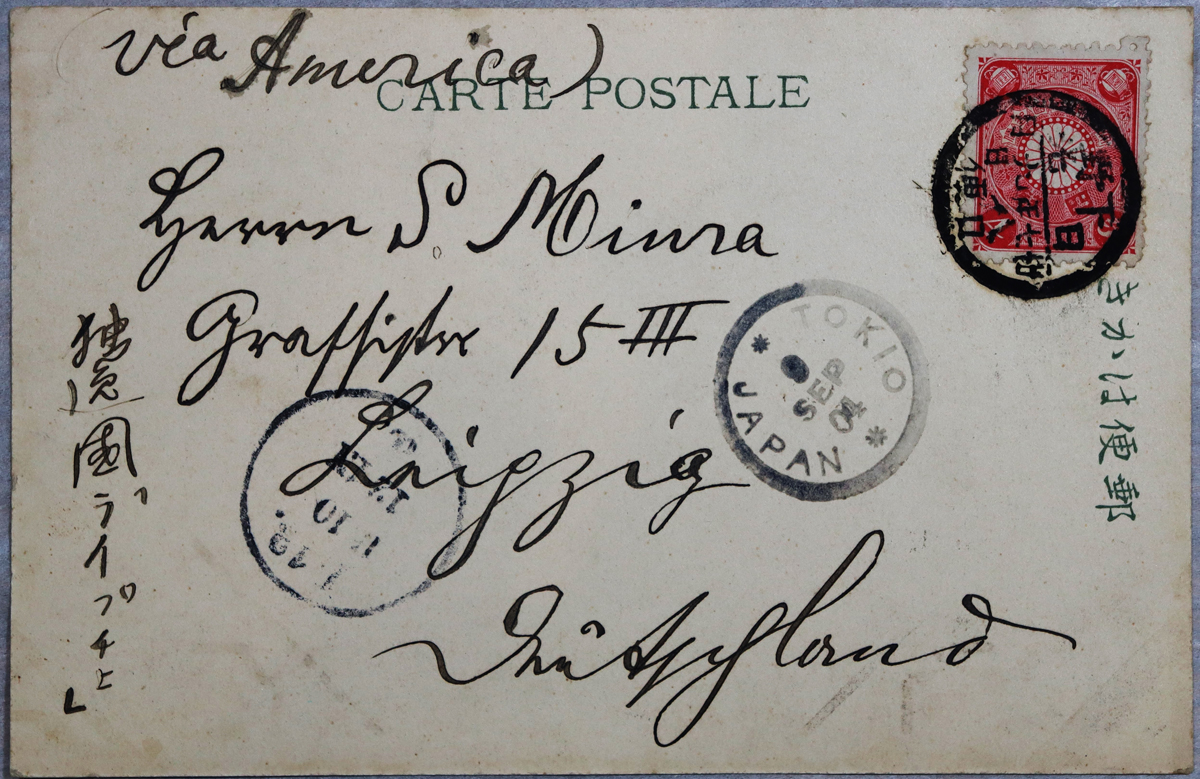 (via America)
CARTE POSTALE
Herrn S. Miura
Grassistr 15 III
Leipzig
Deutschland
独逸國ライプチヒ
TOKIO
9
SEP
04
JAPAN
きかは便郵